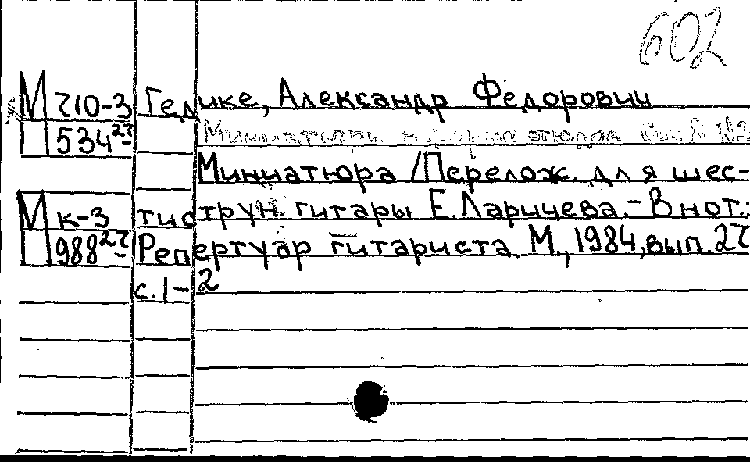 602
М 710-3 Гедике, Александр Федорович
П 534 27
Миниатюра /Перелож. для шес-
М к-3 тиструн. гитары Е. Ларичева.- В нот.:
П 988 27 Репертуар гитариста М., 1984, вып. 27
с. 1-2